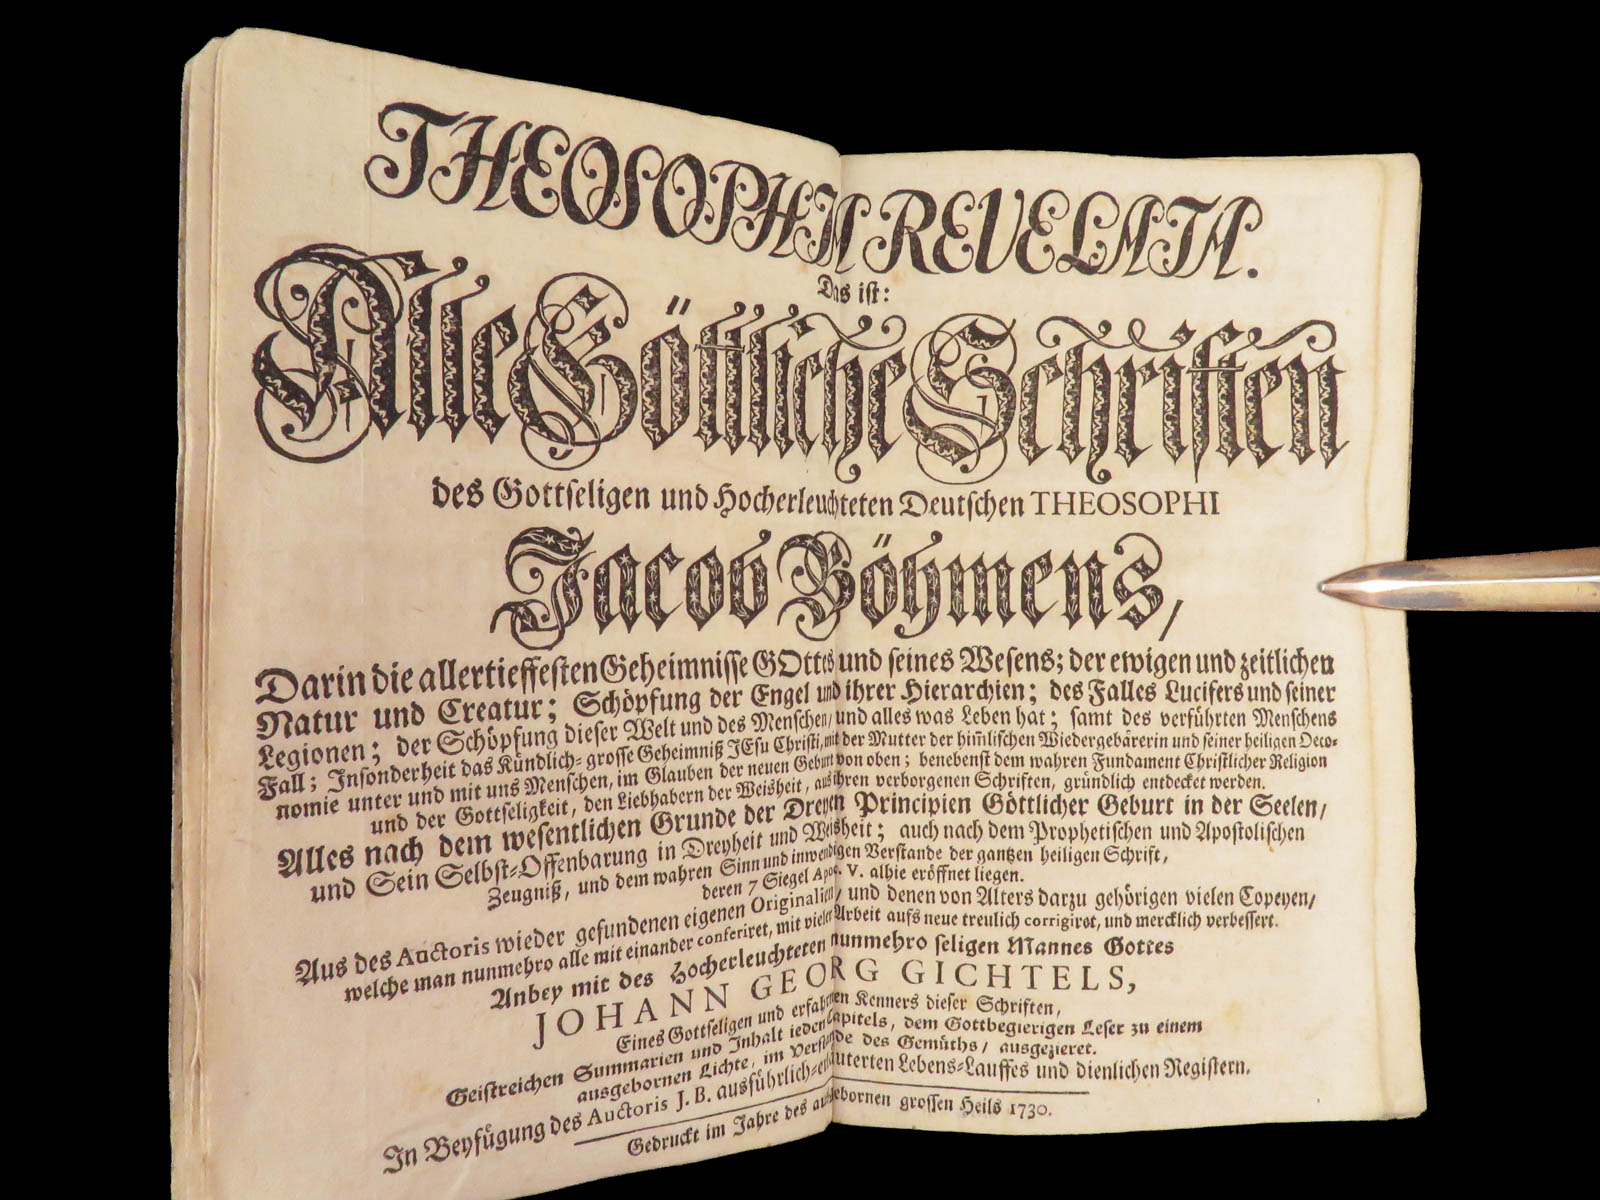 THEOSOPHIA REVELATA.
Das ist:
Alle Göttliche Schriften
des Gottseligen und Hocherleuchteten Deutschen THEOSOPHI
Jacob Böhmens,
Darin die allertieffesten Geheimnisse GOttes und seines Wesens; der ewigen und zeitlichen
Natur und Creatur; Schöpfung der Engel und ihrer Hierarchien; des Falles Lucifers und seiner
Legionen; der Schöpfung dieser Welt und des Menschen, und alles was Leben hat; samt des verführten Menschens
Fall; Insonderheit das Kündlich-grosse Geheimniß JEsu Christi, mit der Mutter der him̄lischen Wiedergebärerin und seiner heiligen Oeco-
nomie unter und mit uns Menschen, im Glauben der neuen Geburt von oben; benebenst dem wahren Fundament Christlicher Religion
und der Gottseligkeit, den Liebhabern der Weisheit, aus ihren verborgenen Schriften, gründlich entdecket werden.
Alles nach dem wesentlichen Grunde der Dreyen Principien Göttlicher Geburt in der Seelen/
und Sein Selbst-Offenbarung in Dreyheit und Weisheit; auch nach dem Prophetischen und Apostolischen
Zeugniß, und dem wahren Sinn und inwendigen Verstande der gantzen heiligen Schrift,
deren 7 Siegel Apoc. V. alhie eröffnet liegen.
Aus des Auctoris wieder gefundenen eigenen Originalien, und denen von Alters darzu gehörigen vielen Copeyen/
welche man nunmehro alle mit einander conferiret, mit vieler Arbeit aufs neue treulich corrigiret, und mercklich verbessert.
Anbey mit des Hocherleuchteten nunmehro seligen Mannes Gottes
JOHANN GEORG GICHTELS,
Eines Gottseligen und erfahrnen Kenners dieser Schriften,
Geistreichen Summarien und Inhalt ieden Capitels, dem Gottbegierigen Leser zu einem
ausgebornen Lichte, im Verstande des Gemüths/ ausgezieret.
In Beyfügung des Auctoris J. B. ausführlich-erläuterten Lebens-Lauffes und dienlichen Registern.
Gedruckt im Jahre des ausgebornen grossen Heils 1730.